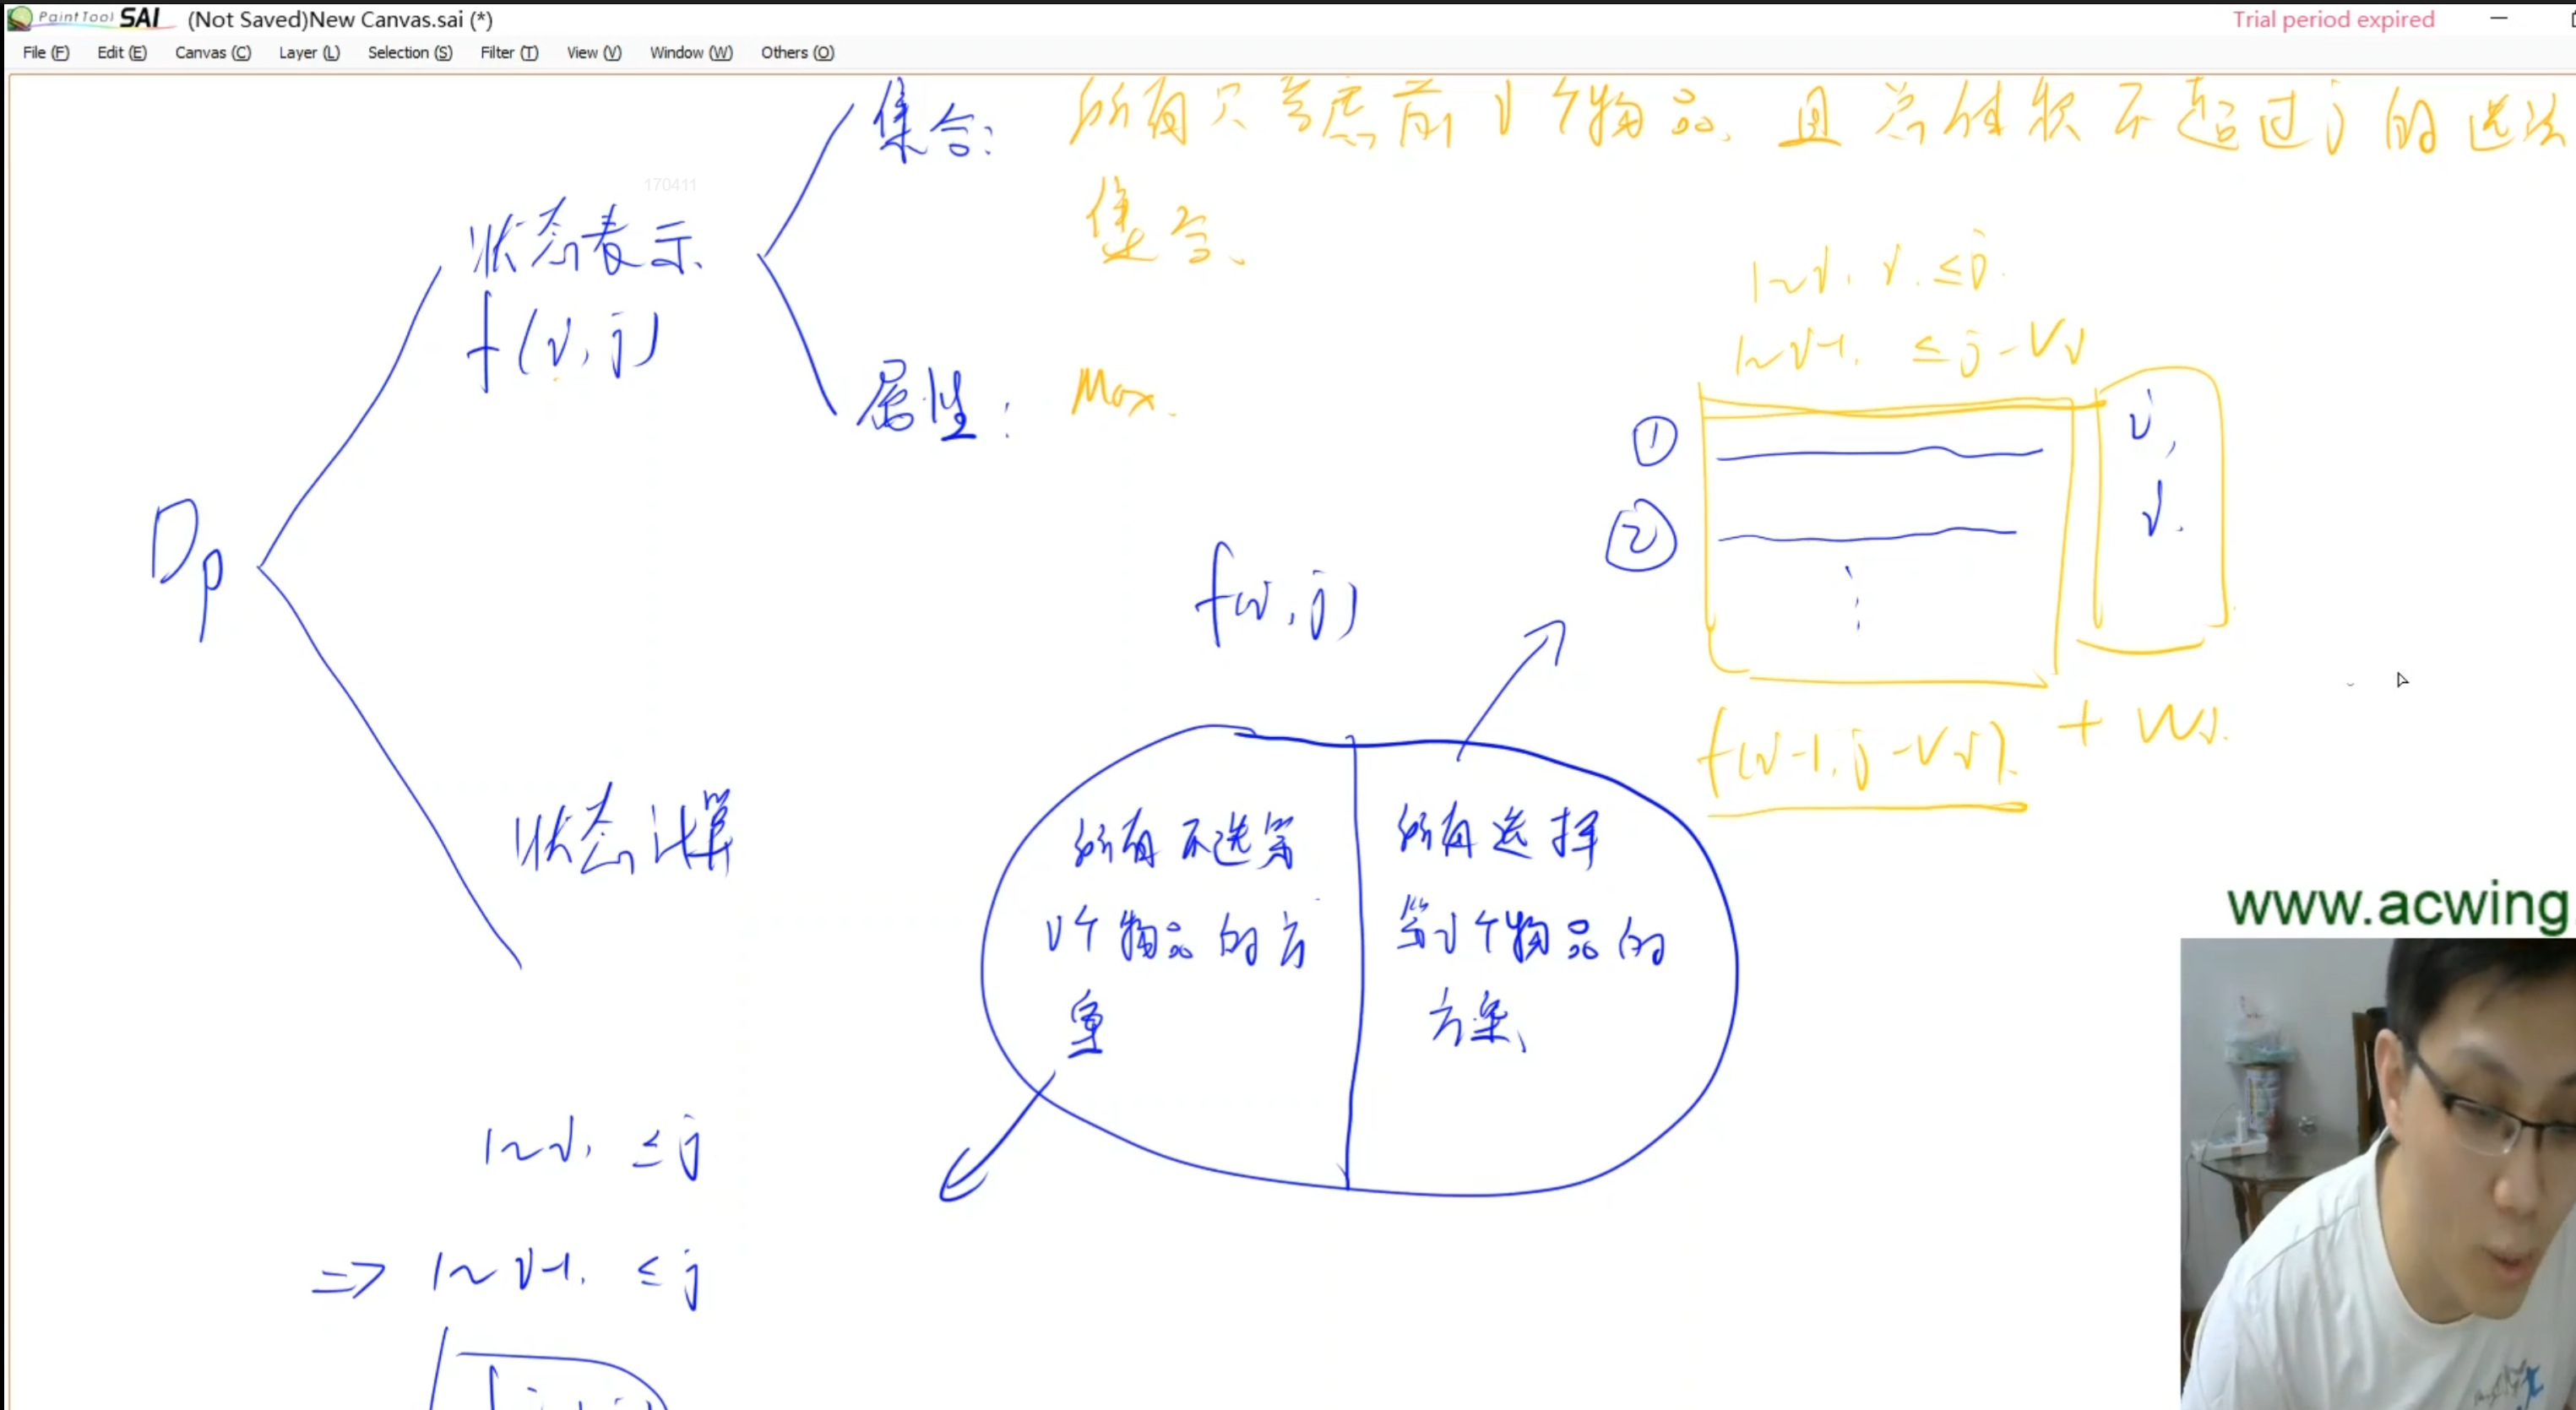 PaintTool SAI (Not Saved)New Canvas.sai (*) Trial period expired
File (F) Edit (E) Canvas (C) Layer (L) Selection (S) Filter (T) View (V) Window (W) Others (O)
集合: 所有只考虑前 i 个物品, 且总体积不超过 j 的选法
集合.
170411
状态表示
f(i, j)
属性: Max.
1~i, ≤j.
1~i-1. ≤ j - Vi
①
②
i,
i.
f(i-1, j-Vi). + Wi.
Dp
f(i, j)
状态计算
所有不选第
i个物品的方
案
所有选择
第i个物品的
方案
www.acwing
1~i, ≤j
=> 1~i-1. ≤j